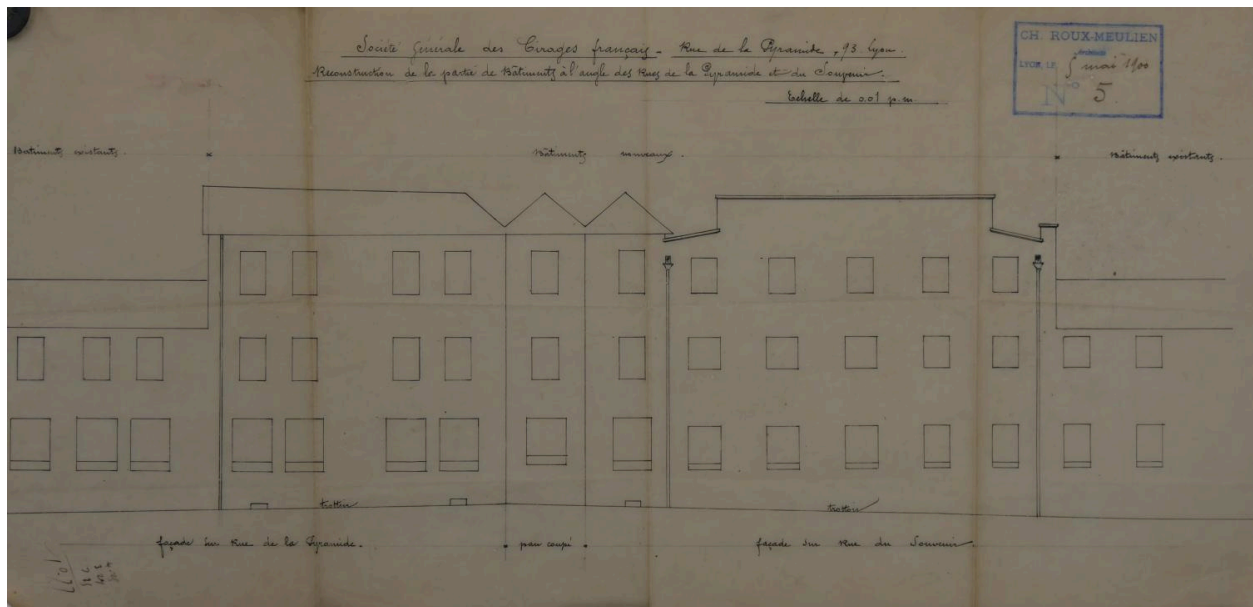 Société Générale des Cirages français - Rue de la Pyramide, 93. Lyon.
Reconstruction de la partie de Bâtiments à l'angle des Rues de la Pyramide et du Souvenir.
Echelle de 0.01 p.m
CH. ROUX-MEULIEN
LYON, LE 5 mai 1900
N° 5
Batiments existants.
Bâtiments nouveaux.
Bâtiments existants.
trottoir
trottoir
façade sur Rue de la Pyramide.
pan coupé
façade sur Rue du Souvenir.